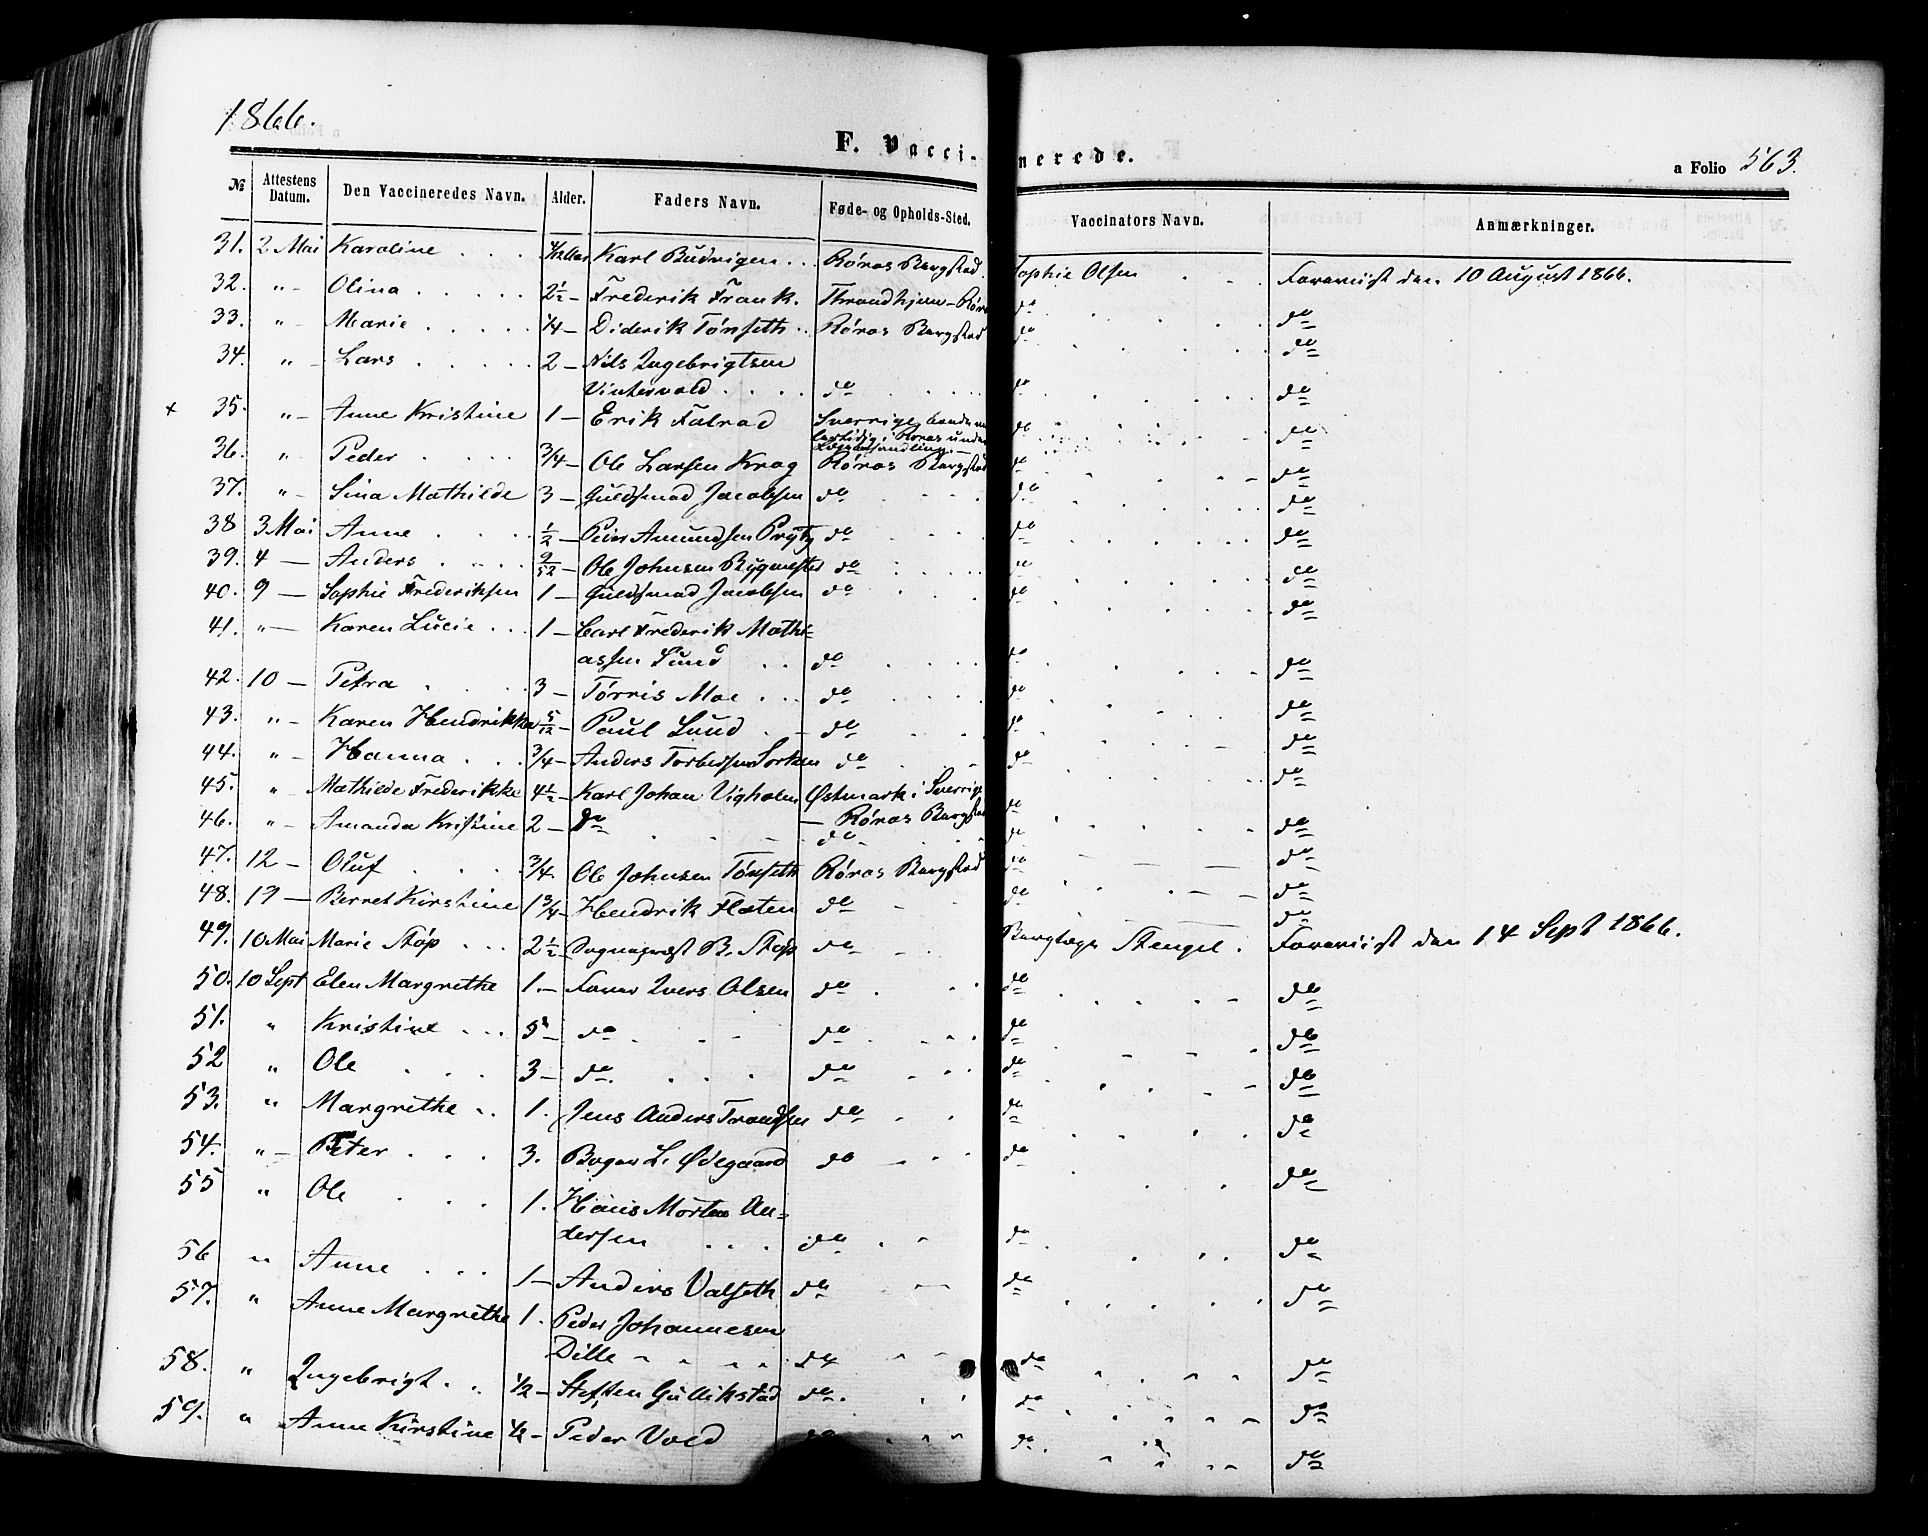 1866.
F. Vaccinerede.
a Folio 563.
№ Attestens Datum. Den Vaccineredes Navn. Alder. Faders Navn. Føde- og Opholds-Sted. Vaccinators Navn. Anmærkninger.
31. 2 Mai Karoline Karl Budvigen Røros Bergstad. Sophie Olsen Foreviist den 10 August 1866.
32. " - Olina 2½ - Frederik Frank. Throndhjem - Røros do do
33. " - Marie ¼ - Diderik Tønseth Røros Bergstad do do
34. " - Lars 2 - Nils Ingebrigtsen
Vintervold do do do
x 35. " - Anne Kristine 1 - Erik Falrad Sverrige do do
36. " - Peder ¾ - Ole Larsen Krog Røros Bergstad do do
37. " - Sina Mathilde 3 - Guldsmed Jacobsen do do do
38 3 Mai Anne ½ - Peder Amundsen Prytz do do do
39. 4 - Anders 9/52 - Ole Johnsen Bygmester do do do
40. 9 - Sophie Frederiksen 1 - Guldsmed Jacobsen do do do
41. " - Karen Lucie 1 - Carl Frederik Mathi-
assen Lund do do do
42. 10 - Petra 3 - Tørris Moe do do do
43. " - Karen Hendrikke 5/12 - Paul Lund do do do
44. " - Hanna ¾ - Anders Torbersen Sorken do do do
45. " Mathilde Frederikke 4½ - Karl Johan Vigholm Østmark i Sverrige
- Røros Bergstad do do
46. " - Amanda Kristine 2 - do do do do
47. 12 - Oluf ¾. Ole Johnsen Tønseth Røros Bergstad do do
48. 19 - Berret Kirstine 1¾ - Hendrik Flaten do do do
49. 10 Mai Marie Støp 2½ - Sognepræst B. Støp do Berglæge Stengel. Foreviist den 14 Sept 1866.
50. 10 Sept Elen Margrethe 1. - Farver Ivers Olsen do do do
51. " Kristine 5 - do do do do
52 " Ole 3 - do do do do
53. " Margrethe 1. Jens Anders Trondsen do do do
54. " - Peter 3. Bager L. Ødegaard do do do
55 " Ole 1. Hans Morten An-
dersen do do do
56 " Anne 1 - Anders Valseth do do do
57. " Anne Margrethe 1. Peder Johannesen
Dille do do do
58. " Ingebrigt ½ - Steffen Gullikstad do do do
59. " Anne Kirstine ½ - Peder Vold do do do